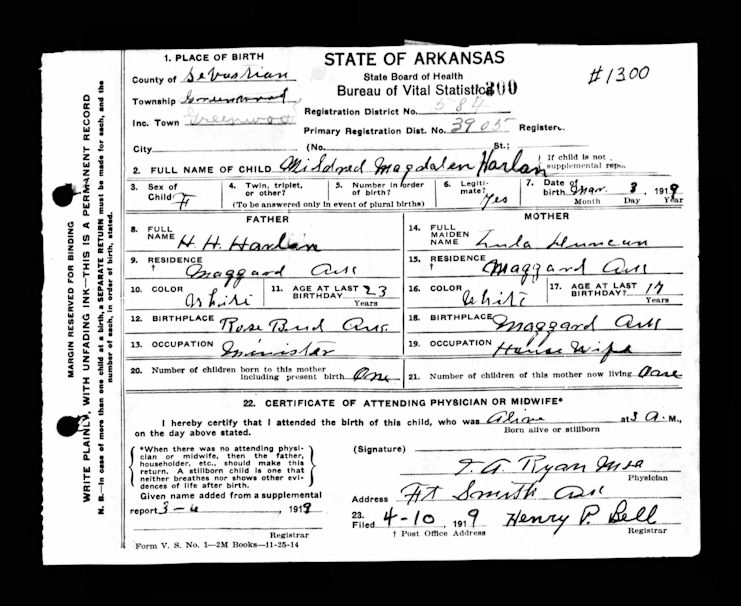 1. PLACE OF BIRTH
County of Sebastian
Township Greenwood
Inc. Town Greenwood
City (No. St.;
STATE OF ARKANSAS
State Board of Health
Bureau of Vital Statistics 300
#1300
Registration District No. 584
Primary Registration Dist. No. 3905 Register
2. FULL NAME OF CHILD Mildred Magdalen Harlan
If child is not
supplemental repo
3. Sex of Child F
4. Twin, triplet, or other?
5. Number in order of birth?
(To be answered only in event of plural births)
6. Legitimate? Yes
7. Date of birth Mar. 3, 1919
Month Day Year
FATHER
8. FULL NAME H. H. Harlan
9. RESIDENCE † Maggard Ark
10. COLOR White
11. AGE AT LAST BIRTHDAY 23
Years
12. BIRTHPLACE Rose Bud Ark
13. OCCUPATION Minister
MOTHER
14. FULL MAIDEN NAME Lula Duncan
15. RESIDENCE † Maggard Ark
16. COLOR White
17. AGE AT LAST BIRTHDAY? 17
Years
18. BIRTHPLACE Maggard Ark
19. OCCUPATION House Wife
20. Number of children born to this mother including present birth One
21. Number of children of this mother now living One
22. CERTIFICATE OF ATTENDING PHYSICIAN OR MIDWIFE*
I hereby certify that I attended the birth of this child, who was Alive at 3 A. M.,
Born alive or stillborn
on the day above stated.
*When there was no attending physi-
cian or midwife, then the father,
householder, etc., should make this
return. A stillborn child is one that
neither breathes nor shows other evi-
dences of life after birth.
Given name added from a supplemental
report 3-6, 1919
Registrar
(Signature)
Ryan
Physician
Address Ft Smith Ark
23.
Filed 4-10, 1919 Henry P. Bell
† Post Office Address Registrar
Form V. S. No. 1—2M Books—11-25-14
MARGIN RESERVED FOR BINDING
WRITE PLAINLY, WITH UNFADING INK—THIS IS A PERMANENT RECORD
N. B.—In case of more than one child at a birth, a SEPARATE RETURN must be made for each, and the
number of each, in order of birth, stated.